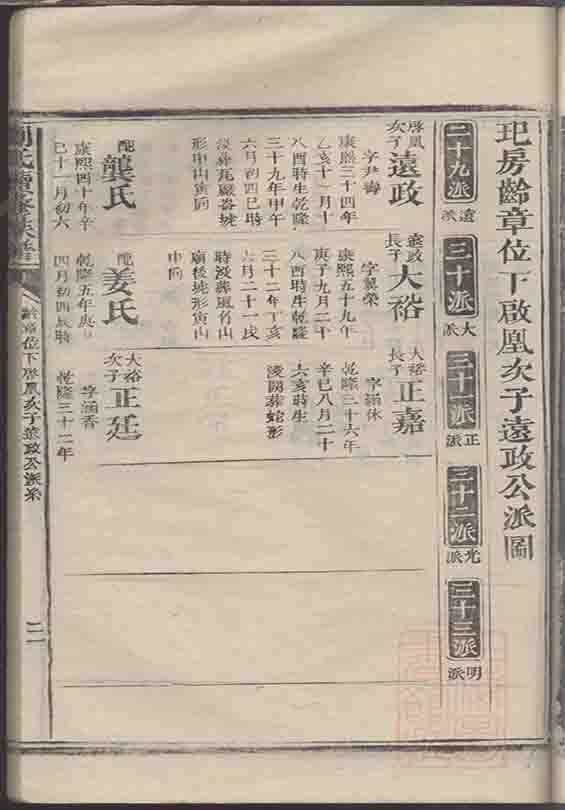 玘房齡章位下啟鳳次子遠政公派圖
二十九派
遠派
三十派
大派
三十一派
正派
三十二派
光派
三十三派
明派
啟鳳
次子遠政
字尹壽
康熙三十四年
乙亥十一月十
八酉時生乾隆
三十九年甲午
六月初四巳時
形申山寅向
配龔氏
康熙四十年辛
巳十一月初六
遠政
長子大裕
字冀榮
康熙五十九年
庚子九月二十
八酉時生乾隆
三十二年丁亥
六月二十一戌
時沒葬風竹山
廟後虎形寅山
申向
配姜氏
乾隆五年庚申
四月初四辰時
大裕
長子正嘉
字涵休
乾隆三十六年
辛卯八月二十
六亥時生
葬蛇形
大裕
次子正廷
字涵香
乾隆三十二年
齡章位下啟鳳次子遠政公派系